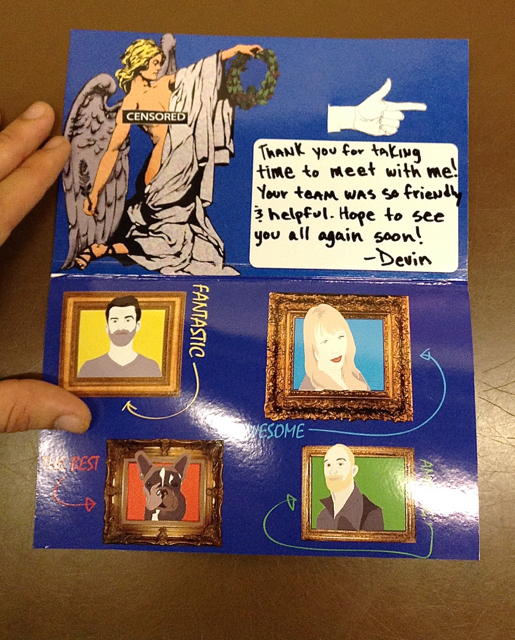 CENSORED
THANK you for taking
time to meet with me!
Your team was so friendly
& helpful. Hope to see
you all again soon!
-Devin
FANTASTIC
BEST